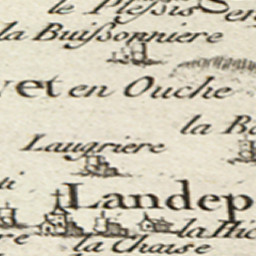 le Plessis
la Buissonniere
vet en Ouche
la Ba
Laugriere
Landep
la Hic
la Chaise